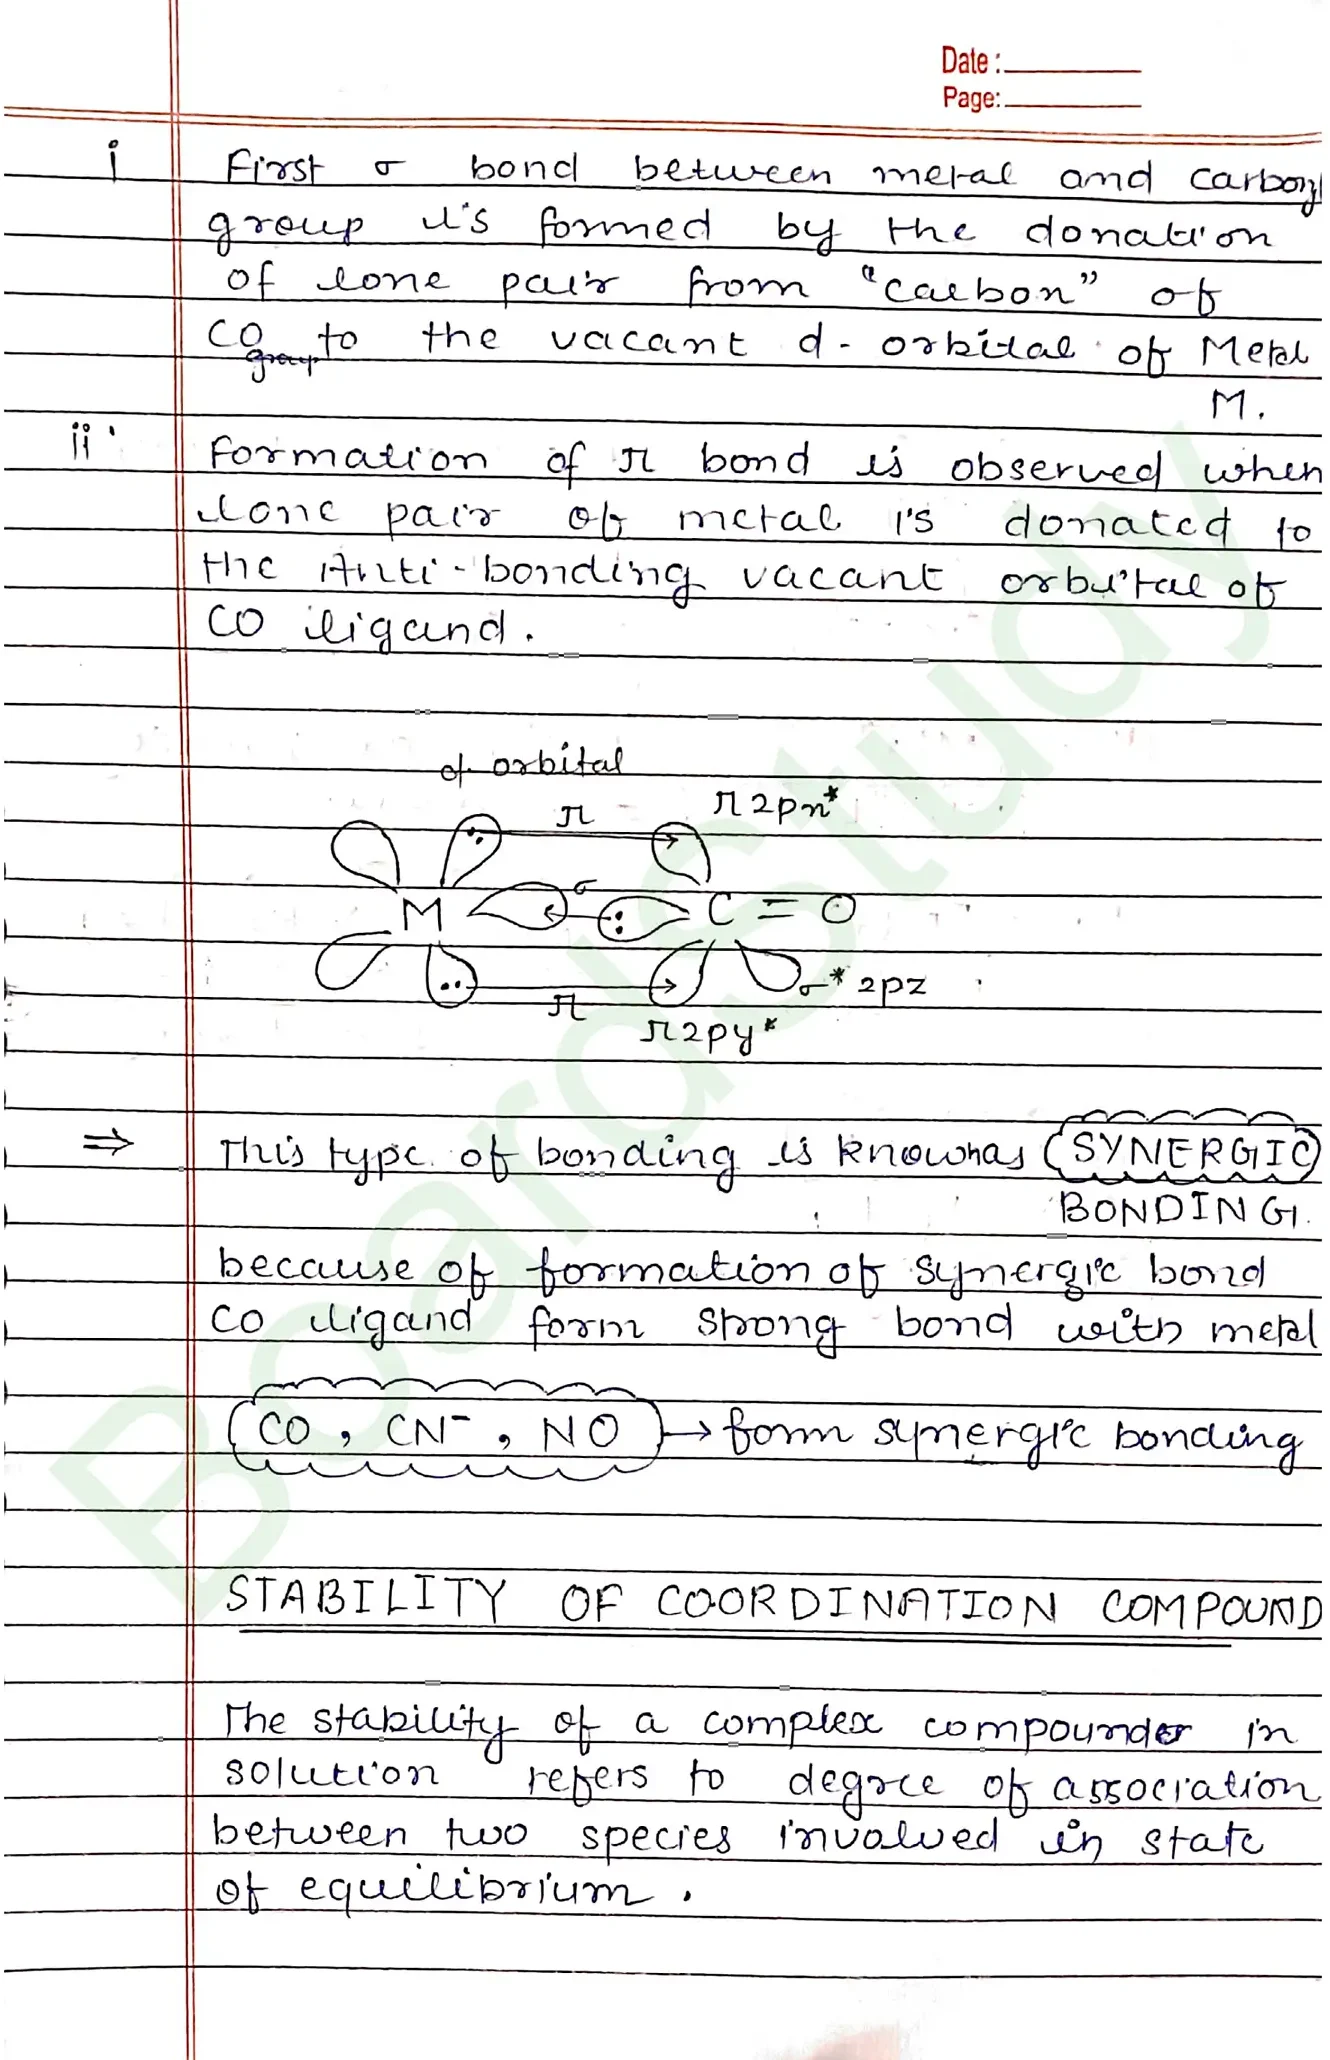 Date :
Page:
i First σ bond between metal and carbonyl
group is formed by the donation
of lone pair from "carbon" of
CO to the vacant d - orbital of Metal
group
M.
ii. formation of π bond is observed when
lone pair of metal is donated to
the Anti-bonding vacant orbital of
CO ligand.
d orbital
π π2px*
σ
M C = O
σ* 2pz
π
π2py*
⇒ This type of bonding is knownas SYNERGIC
BONDING.
because of formation of synergic bond
CO ligand form strong bond with metal
CO, CN⁻, NO → form synergic bonding
STABILITY OF COORDINATION COMPOUND
The stability of a complex compounds in
solution refers to degree of association
between two species involved in state
of equilibrium.
BoardStudy